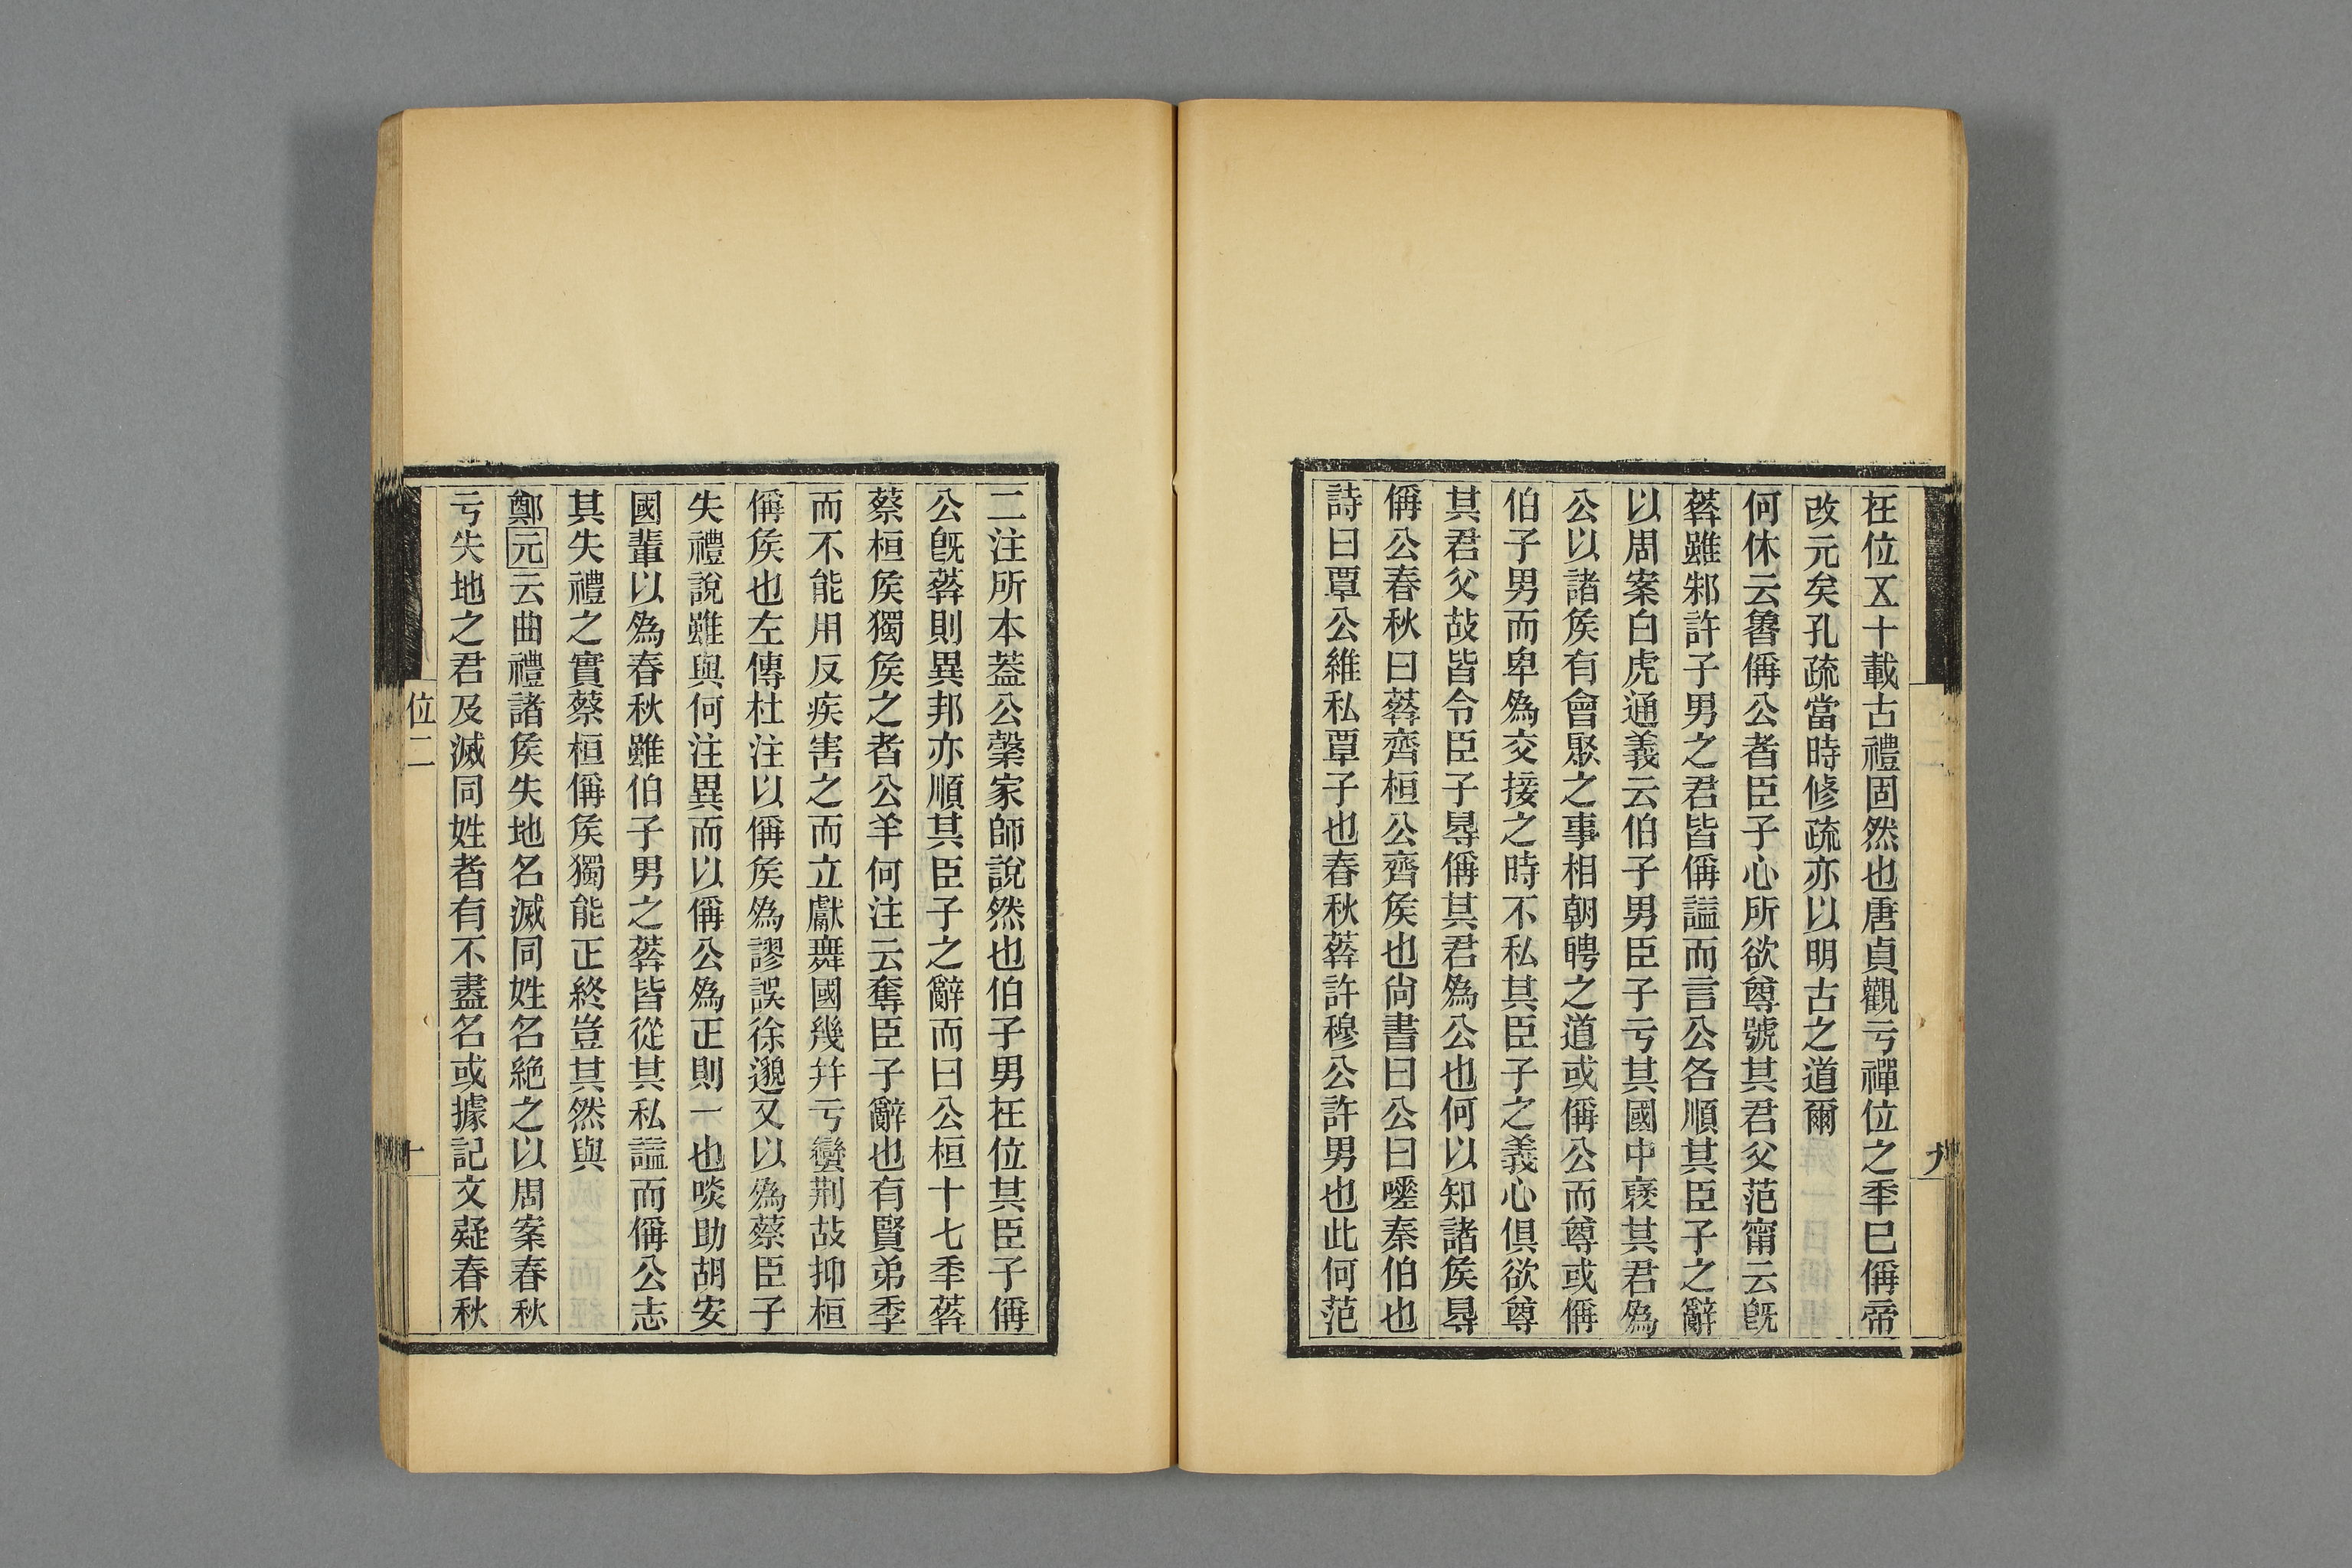 在位㐅十載古禮固然也唐貞觀亏禪位之秊巳偁帝
改元矣孔疏當時修疏亦以明古之道爾
何休云魯偁公者臣子心所欲尊號其君父范甯云旣
葬雖邾許子男之君皆偁謚而言公各順其臣子之辭
以周案白虎通義云伯子男臣子亏其國中襃其君爲
公以諸矦有會聚之事相朝聘之道或偁公而尊或偁
伯子男而卑爲交接之時不私其臣子之義心俱欲尊
其君父故皆令臣子㝵偁其君爲公也何以知諸矦㝵
偁公春秋曰葬齊桓公齊矦也尙書曰公曰嗟秦伯也
詩曰覃公維私覃子也春秋葬許穆公許男也此何范
二注所本葢公榖家師說然也伯子男在位其臣子偁
公旣葬則異邦亦順其臣子之辭而曰公桓十七秊葬
蔡桓矦獨矦之者公羊何注云奪臣子辭也有賢弟季
而不能用反疾害之而立獻舞國幾幷亏蠻荆故抑桓
偁矦也左傳杜注以偁矦爲謬誤徐邈又以爲蔡臣子
失禮說雖與何注異而以偁公爲正則一也啖助胡安
國輩以爲春秋雖伯子男之葬皆從其私謚而偁公志
其失禮之實蔡桓偁矦獨能正終豈其然與
鄭元云曲禮諸矦失地名滅同姓名絶之以周案春秋
亏失地之君及滅同姓者有不盡名或據記文疑春秋
位二
十
九